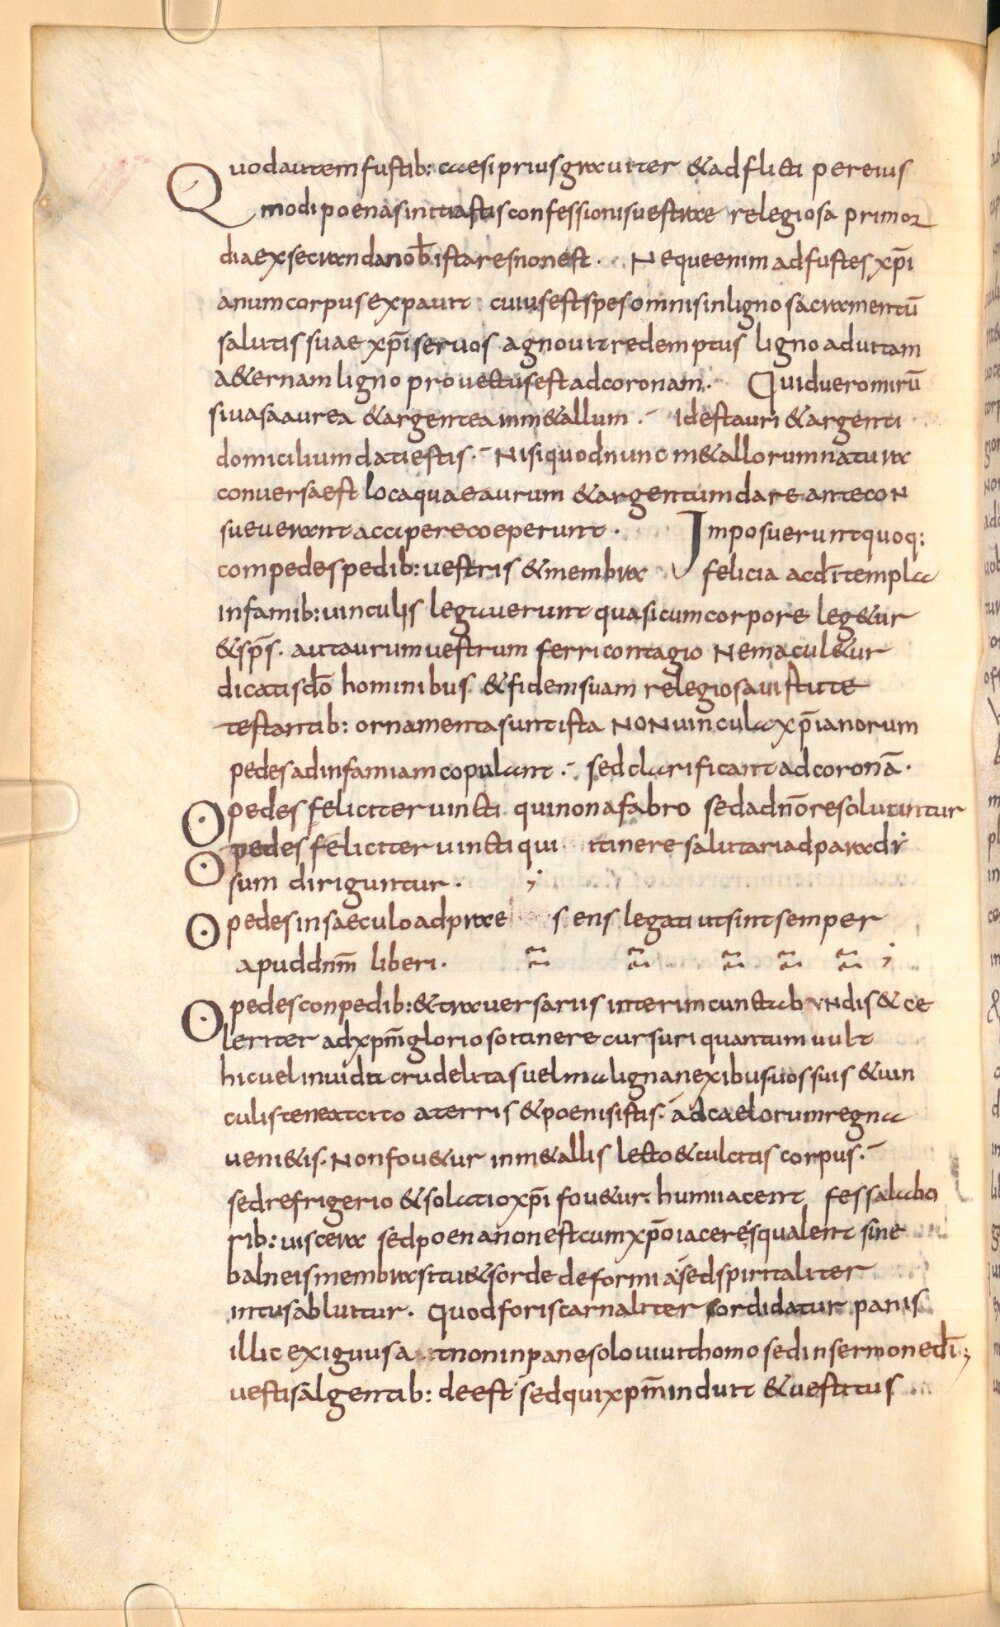 Quod autem fustib: caesi prius grauiter & adflicti per eius
modi poenas initiastis confessionis uestrae relegiosa primor
dia exsecranda nob̄ ista res non est. Neque enim ad fustes xp̄i
anum corpus expauit cuius est spes omnis in ligno sacramentū
salutis suae xp̄i seruos agnouit redemptus ligno ad uitam
a&ernam ligno prouectus est ad coronam. Quid uero mirū
si uasa aurea & argentea in m&allum. id est auri & argenti
domicilium dati estis. Nisi quod nunc m&allorum natura
conuersa est loca quae aurum & argentum dare ante con
sueuerant accipere coeperunt. Imposuerunt quoq:
compedes pedib: uestris & membra felicia ac dī templa
infamib: uinculis legauerunt quasi cum corpore leg&ur
& sp̄s. aut aurum uestrum ferri contagio Ne macul&ur
dicatis dō hominibus & fidem suam relegiosa uistute
testantib: ornamenta sunt ista NON uincula xp̄ianorum
pedes ad infamiam copulant. sed clarificant ad coronā.
O pedes feliciter uincti qui non a fabro sed a dn̄o resoluuntur
O pedes feliciter uincti qui itinere salutari ad paradi
sum diriguntur. ;
O pedes in saeculo ad prae sens legati ut sint semper
apud dnm̄ liberi. ;
O pedes conpedib: & trauersariis interim cunctabundis & ce
leriter ad xpm̄ glorioso itinere cursuri quantum uult
hic uel inuida crudelitas uel maligna nexibus uos suis & uin
culis teneat cito a terris & poenis istis. ad caelorum regna
ueni&is. Non fou&ur in m&allis lecto & culcitis corpus.
sed refrigerio & solatio xp̄i fou&ur. humi iacent fessa labo
rib: uiscera sed poena non est cum xp̄o iacere squalent sine
balneis membra situ & sorde deformia sed spiritaliter
intus abluitur. Quod foris carnaliter sordidatur panis
illic exiguus at non in pane solo uiuit homo sed in sermone dī;
uestis algentib: deest sed qui xpm̄ induit & uestitus